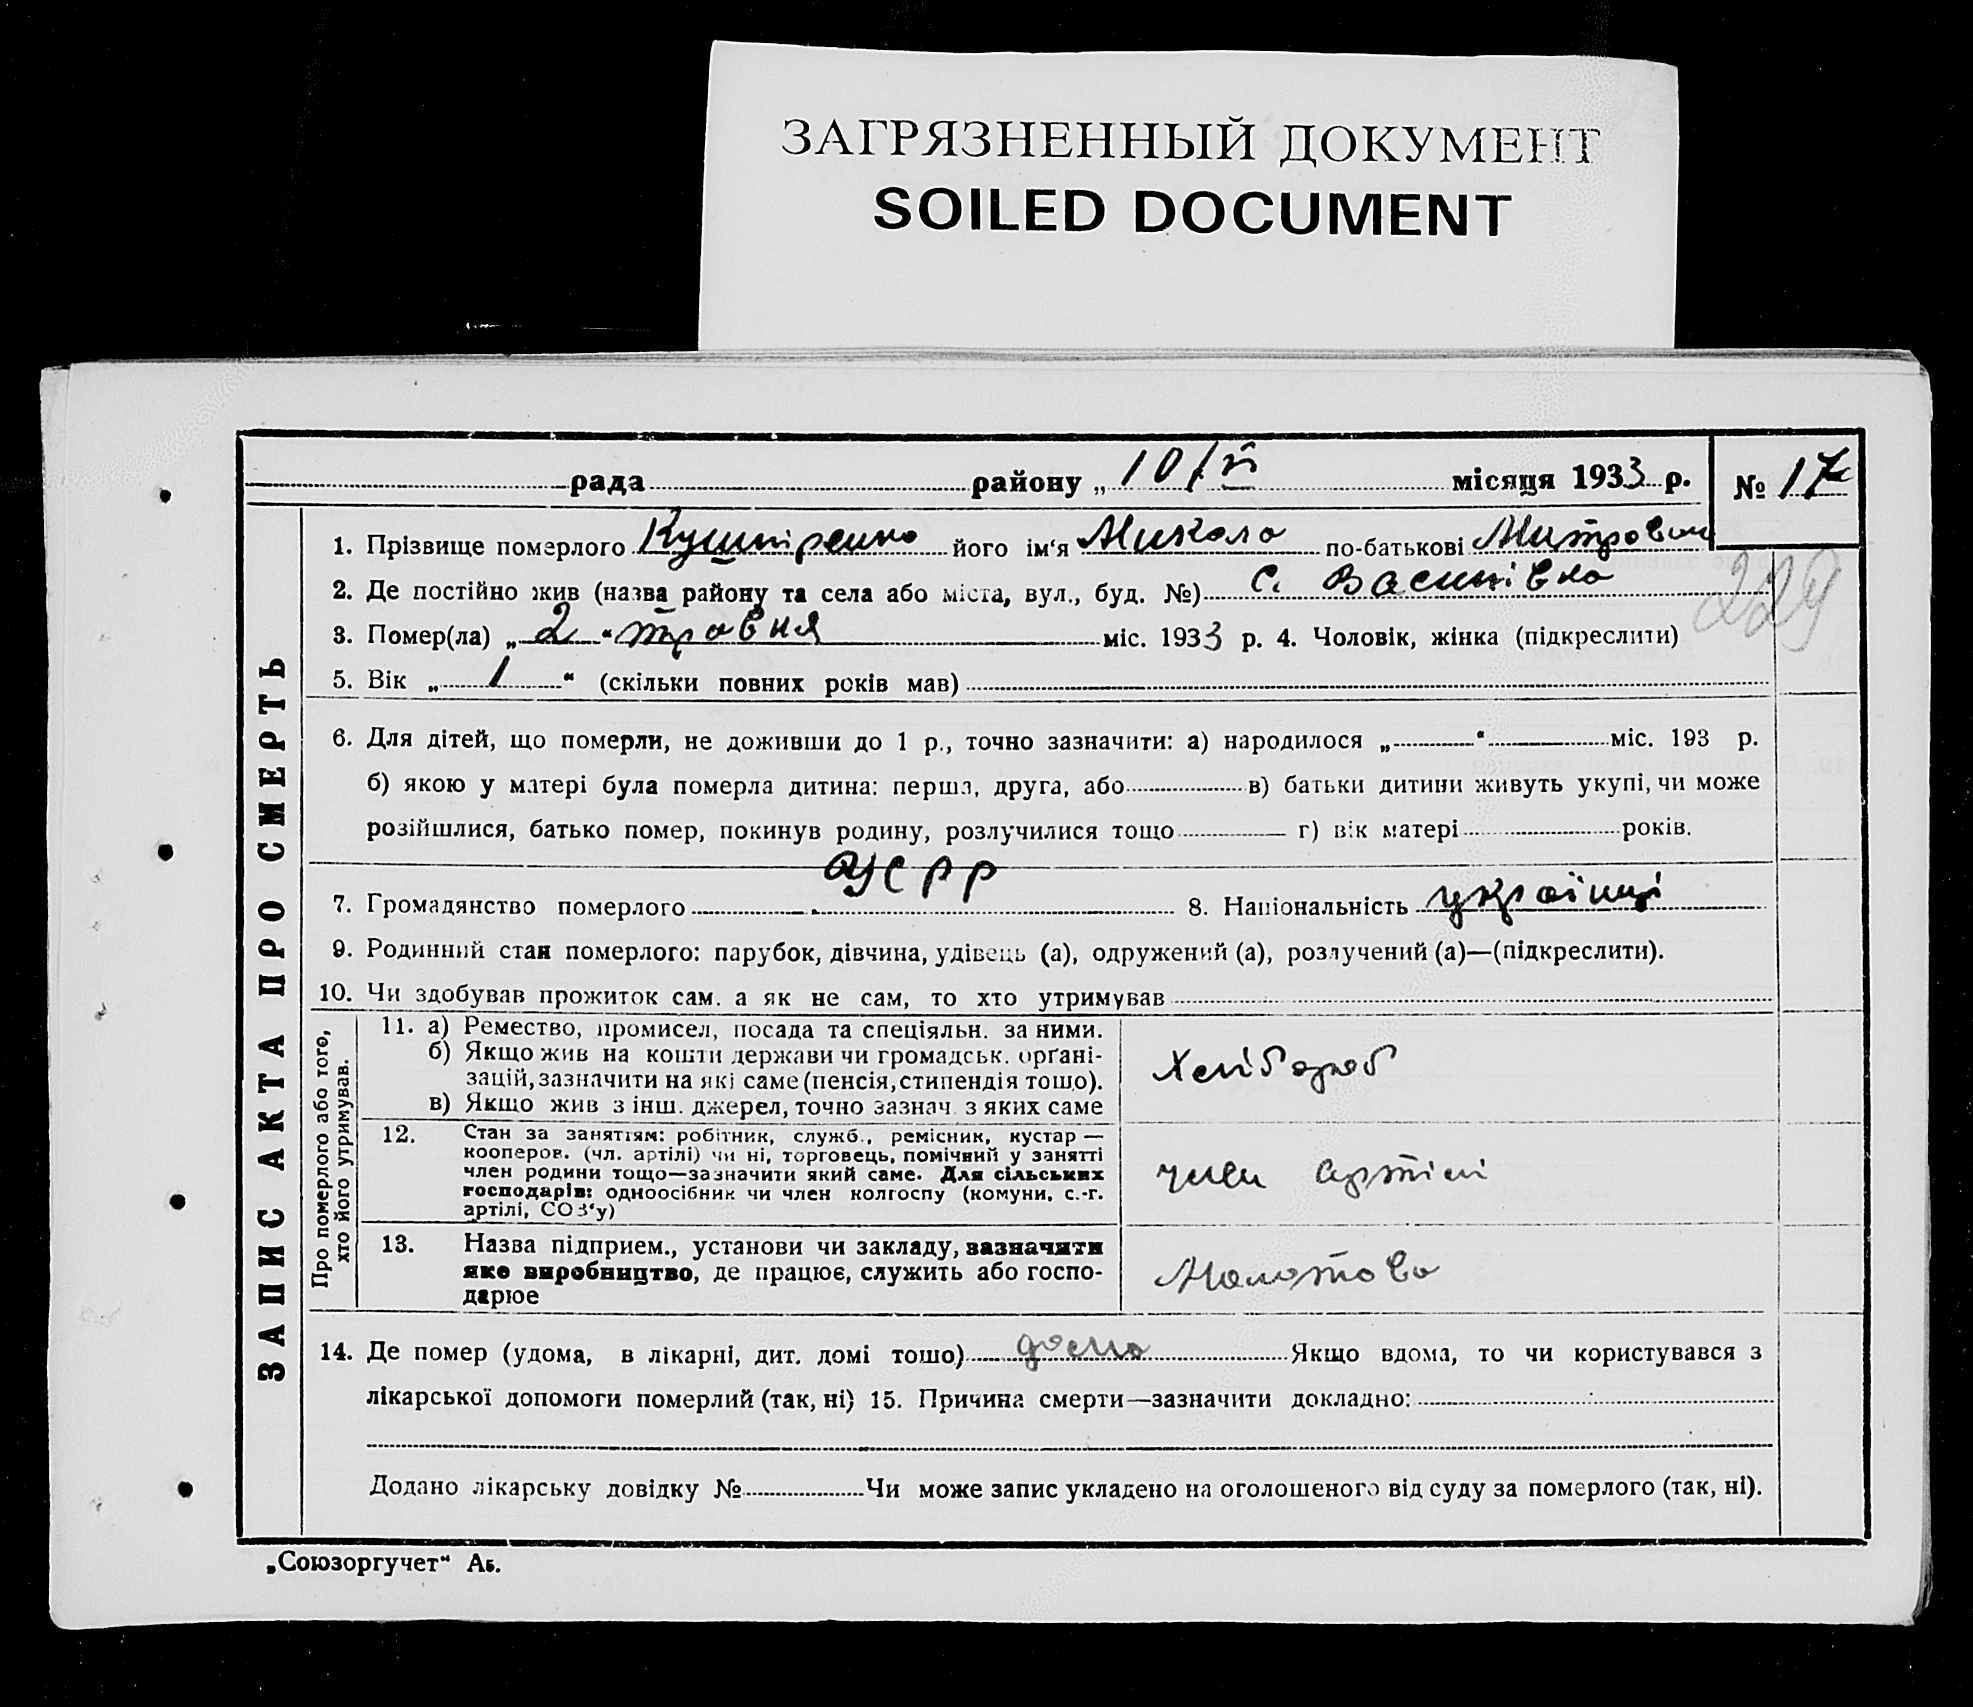 ЗАГРЯЗНЕННЫЙ ДОКУМЕНТ
SOILED DOCUMENT
рада районy „ 10/VI місяця 1933 р. № 17
1. Прізвище померлого Кушніренко його ім'я Микола по-батькові Митрович
229
2. Де постійно жив (назва району та села або міста, вул., буд. №) с. Василівка
3. Помер(ла) „ 2 “ травня міс. 1933 р. 4. Чоловік, жінка (підкреслити)
5. Вік „ 1 “ (скільки повних років мав)
6. Для дітей, що померли, не доживши до 1 р., точно зазначити: а) народилося „ “ міс. 193 р.
б) якою у матері була померла дитина: перша, друга, або в) батьки дитини живуть укупі, чи може
розійшлися, батько помер, покинув родину, розлучилися тощо г) вік матері років.
7. Громадянство померлого УСРР 8. Національність україн
9. Родинний стан померлого: парубок, дівчина, удівець (а), одружений (а), розлучений (а)—(підкреслити).
10. Чи здобував прожиток сам. а як не сам, то хто утримував
ЗАПИС АКТА ПРО СМЕРТЬ
Про померлого або того,
хто його утримував.
11. а) Ремество, промисел, посада та спеціяльн. за ними.
б) Якщо жив на кошти держави чи громадськ. орґані-
зацій, зазначити на які саме (пенсія, стипендія тощо).
в) Якщо жив з інш. джерел, точно зазнач. з яких саме
Хлібороб
12. Стан за заняттям: робітник, служб., ремісник, кустар —
кооперов. (чл. артілі) чи ні, торговець, помічний у занятті
член родини тощо—зазначити який саме. Для сільських
господарів: одноосібник чи член колгоспу (комуни, с.-г.
артілі, СОЗ'у)
член артілі
13. Назва підприєм., установи чи закладу, зазначити
яке виробництво, де працює, служить або госпо-
дарює
Молотова
14. Де помер (удома, в лікарні, дит. домі тощо) дома Якщо вдома, то чи користувався з
лікарської допомоги померлий (так, ні) 15. Причина смерти—зазначити докладно:
Додано лікарську довідку № Чи може запис укладено на оголошеного від суду за померлого (так, ні).
„Союзоргучет“ Аб.